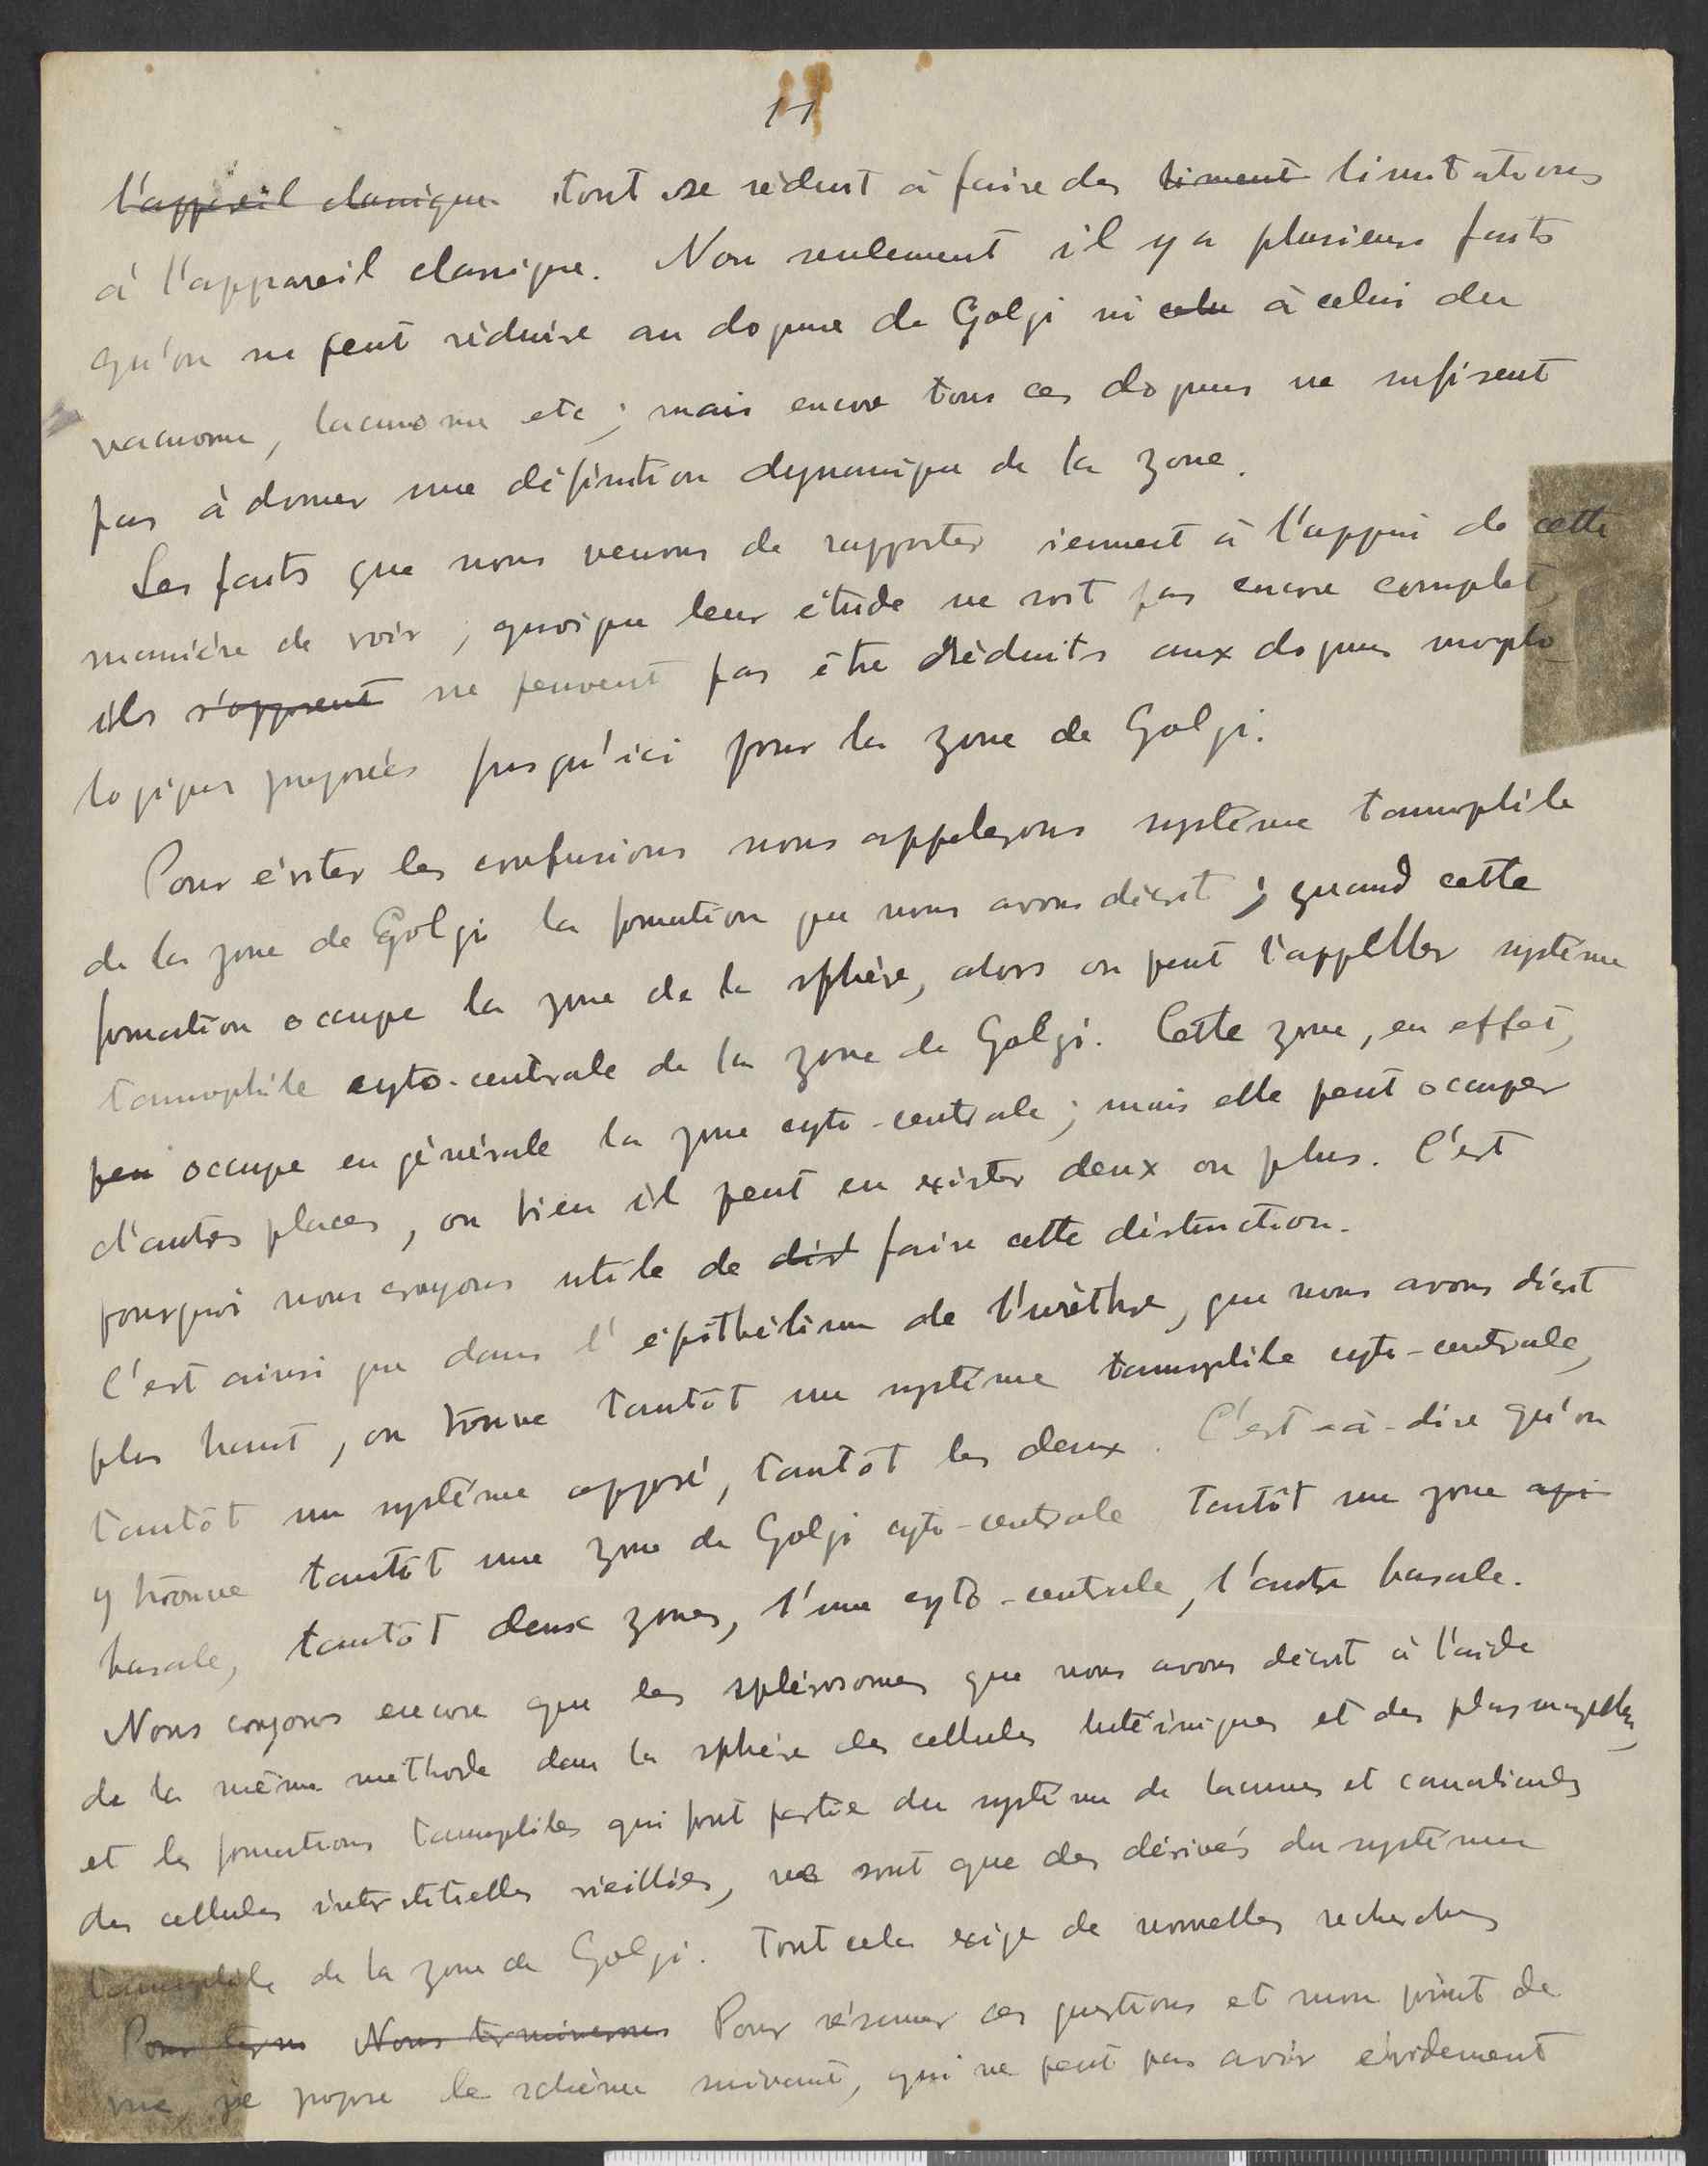 11
l'appareil classique tout se réduit à faire des liment limitations
à l'appareil classique. Non seulement il y a plusieurs faits
qu'on ne peut réduire au dogme de Golgi ni celu à celui du
vacuome, lacunome etc; mais encore tous ces dogmes ne sufisent
pas à donner une définition dynamique de la zone.
Les faits que nous venons de rapporter viennent à l'appui de cette
manière de voir; quoique leur étude ne soit pas encore complet,
ils s'opposent ne peuvent pas être réduits aux dogmes morpho-
logiques proposées jusqu'ici pour la zone de Golgi.
Pour éviter les confusions nous appelerons système tannophile
de la zone de Golgi la formation que nous avons décrit; quand cette
formation occupe la zone de la sphère, alors on peut l'appeller système
tannophile cyto-centrale de la zone de Golgi. Cette zone, en effet,
peu occupe en générale la zone cyto-centrale; mais elle peut occuper
d'autres places, ou bien il peut en exister deux ou plus. C'est
pourquoi nous croyons utile de dist faire cette distinction.
C'est ainsi que dans l'épithélium de l'urèthre, que nous avons décrit
plus haut, on trouve tantôt un système tannophile cyto-centrale,
tantôt un système opposé, tantôt les deux. C'est-à-dire qu'on
y trouve tantôt une zone de Golgi cyto-centrale tantôt une zone api
basale, tantôt deux zones, l'une cyto-centrale, l'autre basale.
Nous croyons encore que les sphérosomes que nous avons décrit à l'aide
de la même méthode dans la sphère des cellules lutéiniques et des plasmazellen,
et les formations tannophiles qui font partie du système de lacunes et canalicules
des cellules interstitielles vieillies, ne sont que des dérivés du système
tannophile de la zone de Golgi. Tout cela exige de nouvelles recherches
Pour term Nous terminerons Pour résumer ces questions et mon point de
vue, je propose le schéma suivant, qui ne peut pas avoir évidement